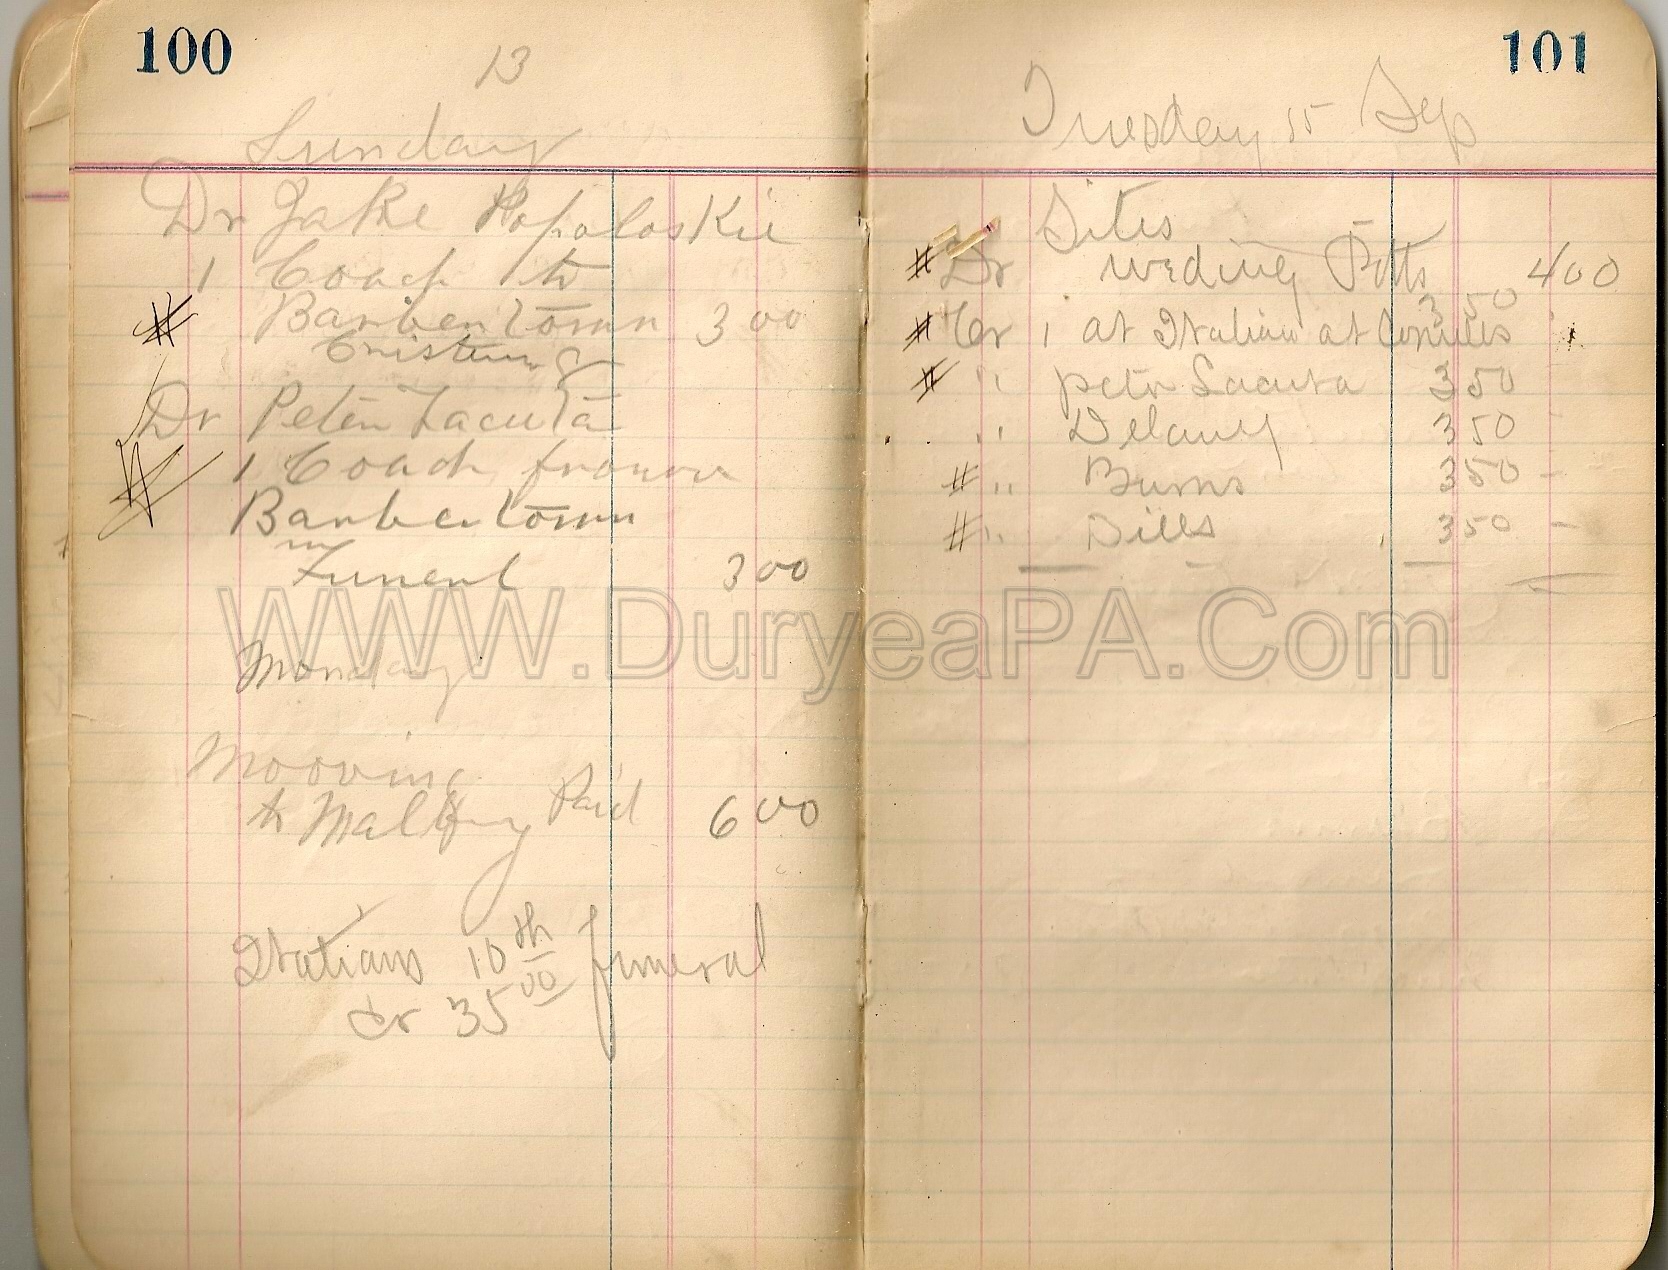 100
13
Sunday
Dr Jake Popoloskie
1 Coach to
# Barbertown 3 00
Cristning
Dr Peter Lacuta
# 1 Coach from
Barbertown
Funerl 300
Monday
Mooving
to Maltby Paid 6 00
Italians 10th funeral
cr 35 00
101
Tuesday 15 Sep
Sites
# Dr weding Pitts 400
3 50
# Cr 1 at Italian at
# " peter Lacuta 3 50
" Delany 3 50
# " Burns 3 50 -
# " Dills 3 50 -
WWW.DuryeaPA.Com